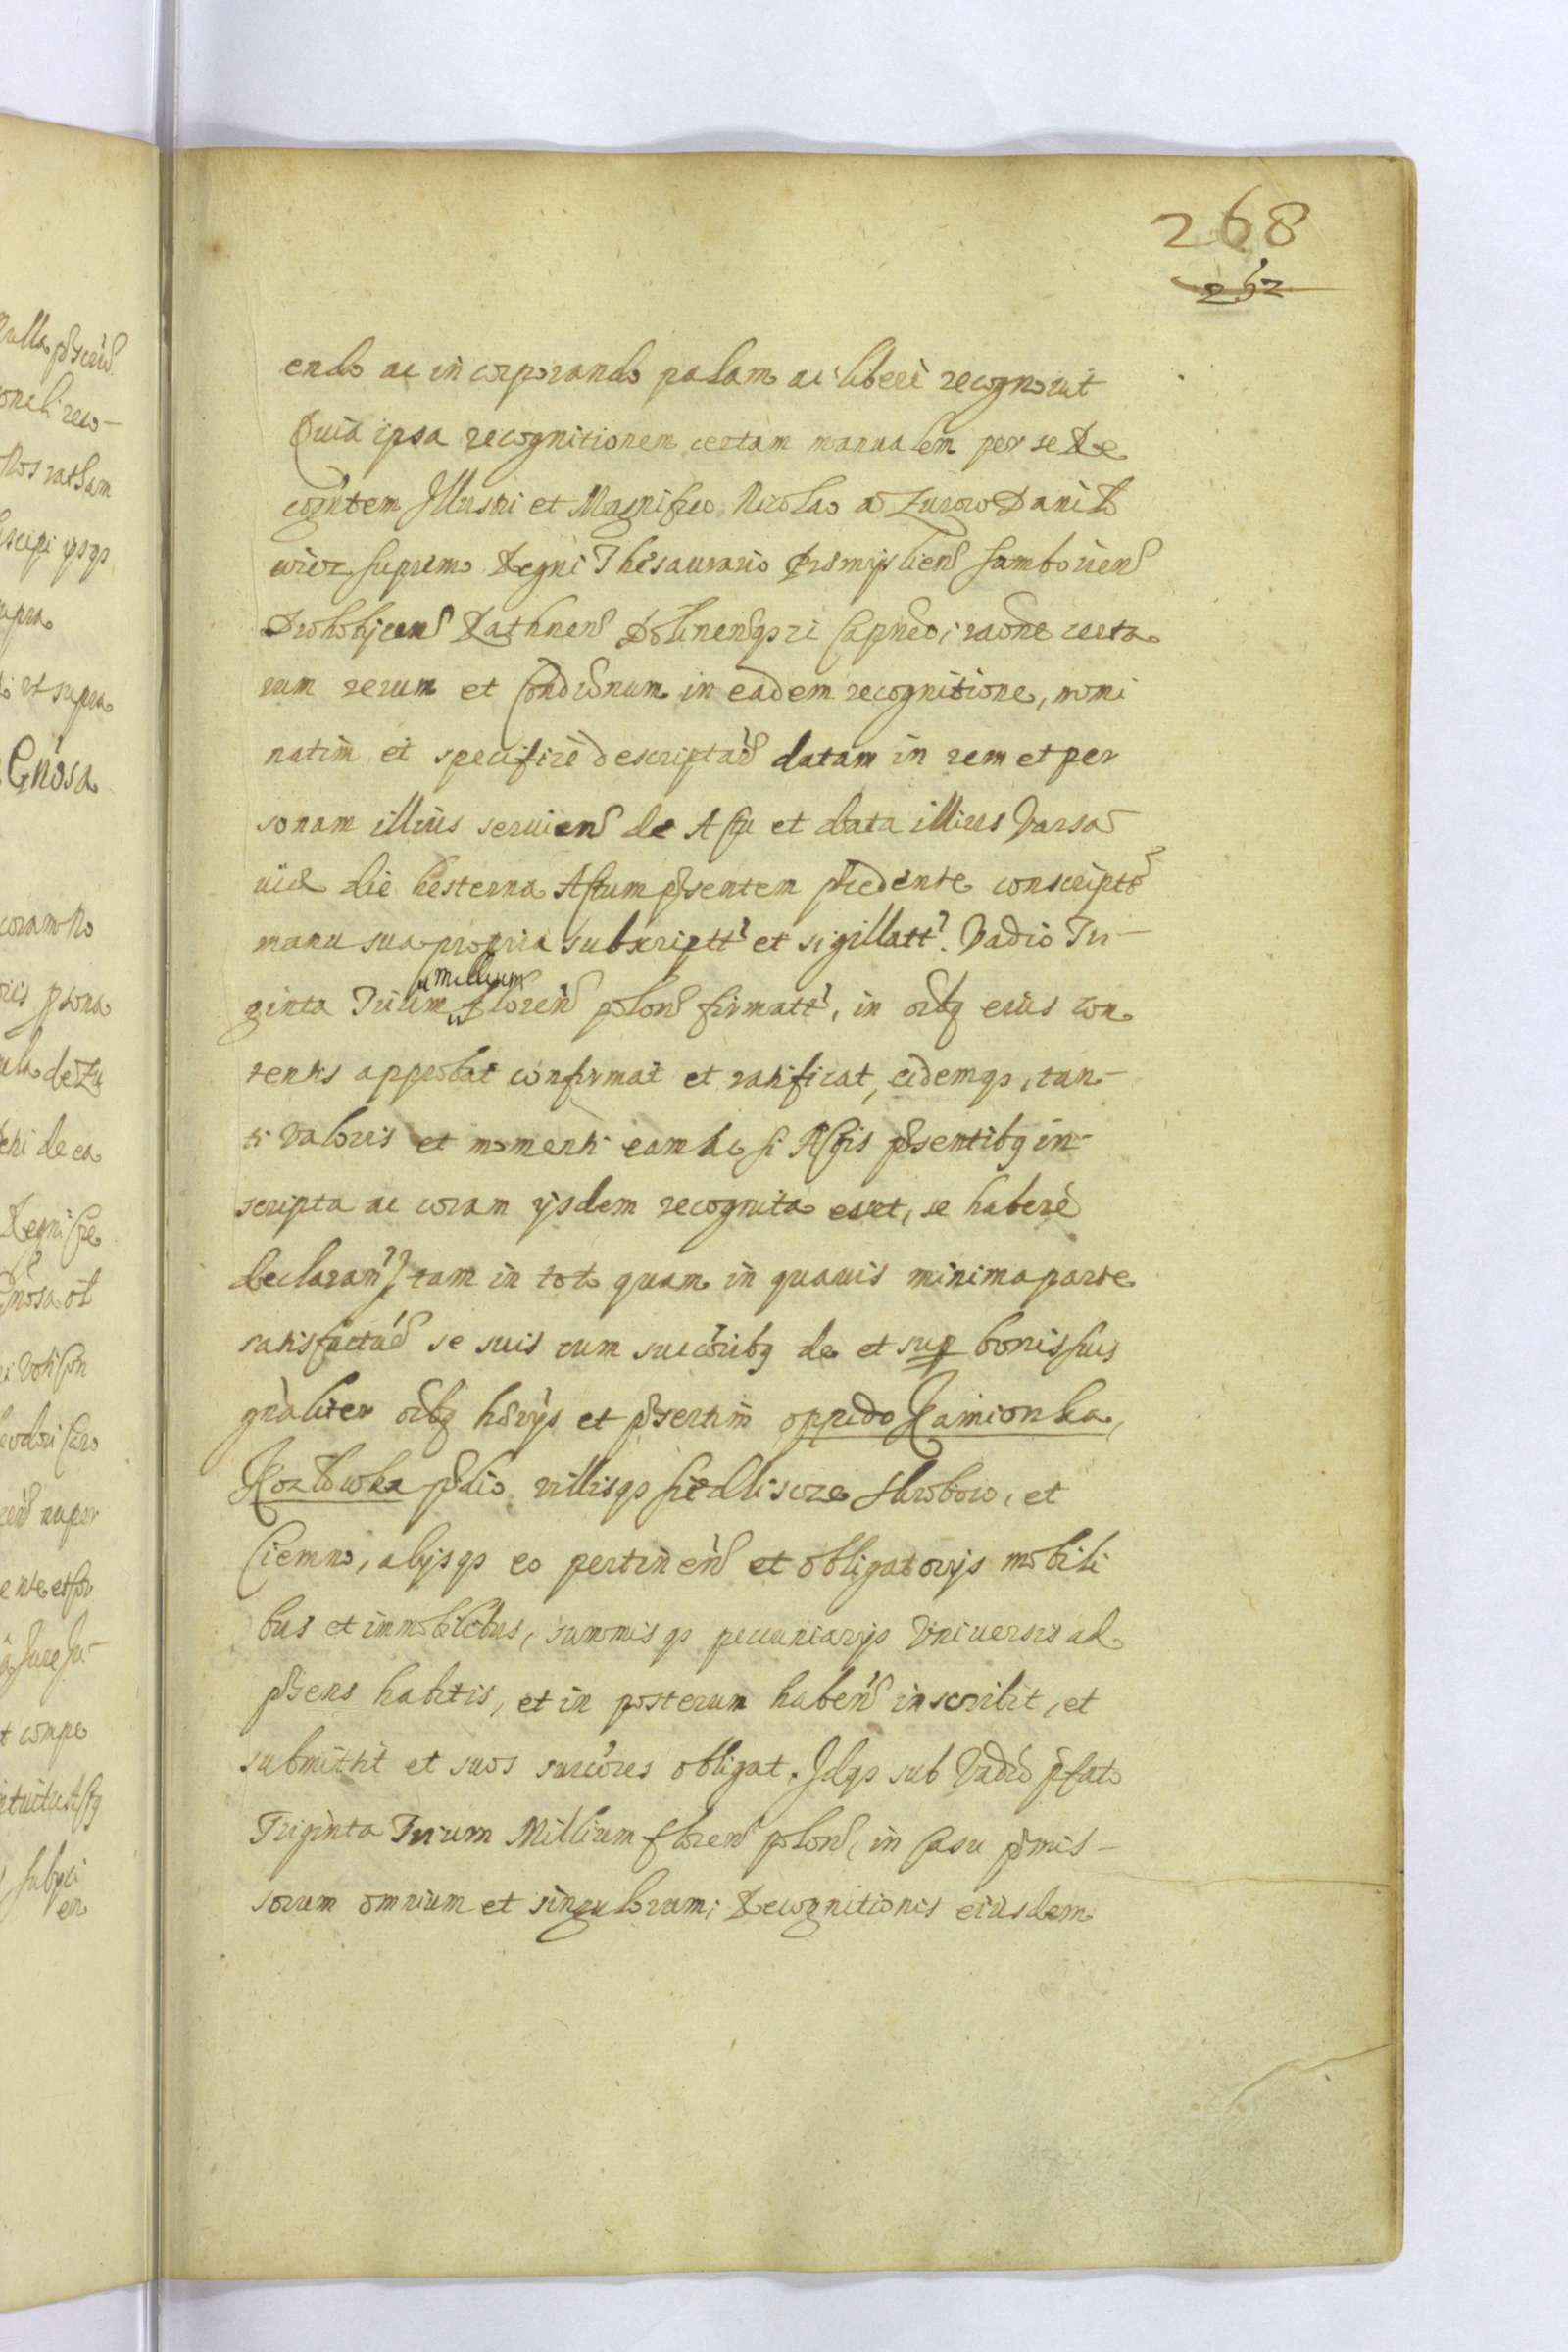 268
252
endo ac incorporando palam ac liberè recognovit
Quia ipsa recognitionem certam manualem per se Re
cogntem Illustri et Magnifico Nicolao a Zurow Danilo
wicz supremo Regni Thesaurario Præmysliens Samboriens
Drohobycens Rathnens Dolinensqz Capneo; raone certa
rum rerum et Condconum in eadem recognitione, nomi
natim et specificè descriptard datam in rem et per
sonam illius seruiens de Actu et data illius Varsa
uiæ die hesterna Actum pñsentem præcedente conscriptt
manu sua propria subscriptt et sigillatt. Vadio Tri-
ginta Trium millium floren polon firmatt, in oibq eius con
tentis approbat confirmat et ratificat, eidemqz, tan-
ti valoris et momenti eam ac si Actis pñsentibq in-
scripta ac coram ijsdem recognita esset, se haberè
declarant, tam in toto quam in quauis minima parte
satisfactard se suis cum succoribq de et sup bonis suis
gnàliter oibq hdrijs et pñsertim oppido Kamionka,
Kozlowka pdio villisqz Siedliscze Skrobow, et
Ciemno, alijsqz eo pertinend et obligatorijs mobili
bus et immobilibus, summisqz pecuniarijs Vniuersis ad
pñsens habitis, et in posterum habend inscribit, et
submittit et suos succores obligat. Idqz sub Vadio pfato
Triginta Trium Millium floren polon, in Casu pmis-
sorum omnium et singulorum; Recognitionis eiusdem